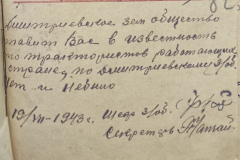 Дмитриевское зем общество
ставит Вас в известность
что трактористов работающих
стране, по Дмитриевскому з/об.
нет и небыло
19/VII-1943 г. Шеф з/об.
Секретарь